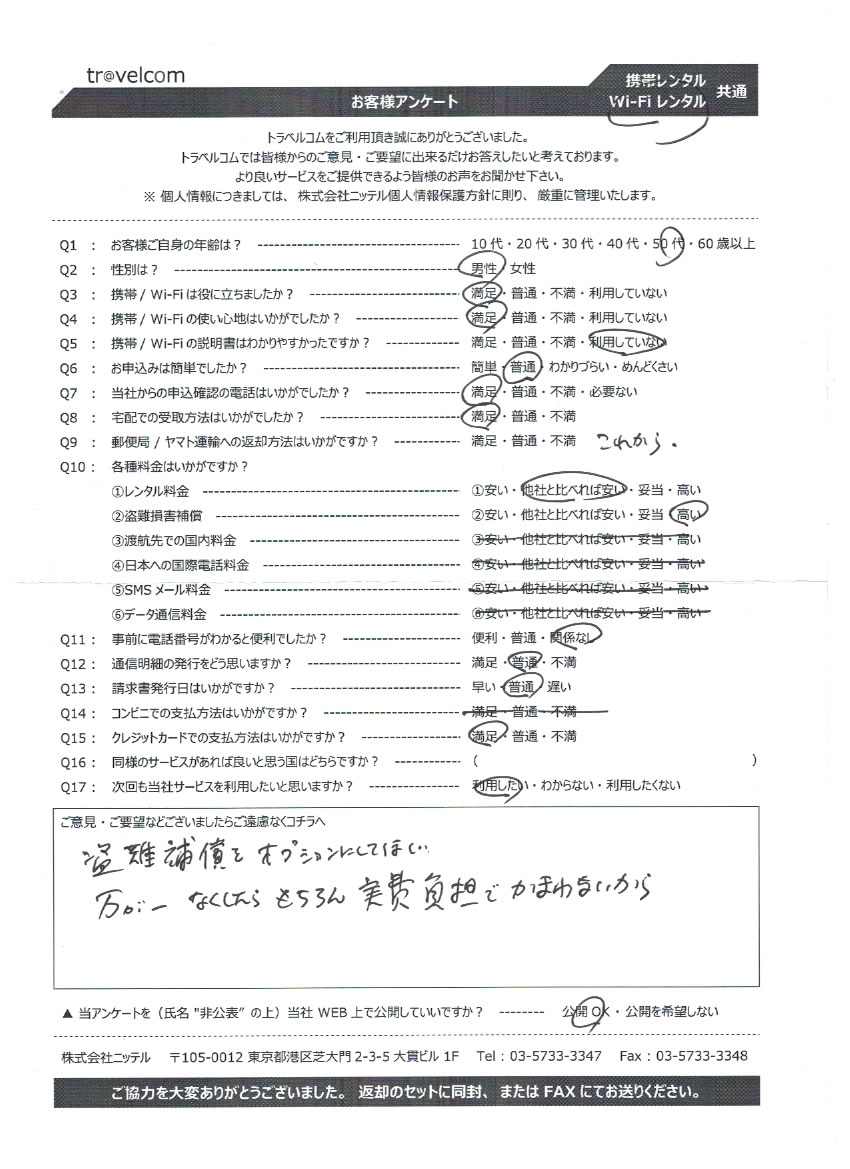 tr@velcom
お客様アンケート
携帯レンタル
Wi-Fi レンタル
共通
トラベルコムをご利用頂き誠にありがとうございました。
トラベルコムでは皆様からのご意見・ご要望に出来るだけお答えしたいと考えております。
より良いサービスをご提供できるよう皆様のお声をお聞かせ下さい。
※ 個人情報につきましては、株式会社ニッテル個人情報保護方針に則り、厳重に管理いたします。
Q1 : お客様ご自身の年齢は? 10代・20代・30代・40代・50代・60歳以上
Q2 : 性別は? 男性・女性
Q3 : 携帯 / Wi-Fi は役に立ちましたか? 満足・普通・不満・利用していない
Q4 : 携帯 / Wi-Fi の使い心地はいかがでしたか? 満足・普通・不満・利用していない
Q5 : 携帯 / Wi-Fi の説明書はわかりやすかったですか? 満足・普通・不満・利用していない
Q6 : お申込みは簡単でしたか? 簡単・普通・わかりづらい・めんどくさい
Q7 : 当社からの申込確認の電話はいかがでしたか? 満足・普通・不満・必要ない
Q8 : 宅配での受取方法はいかがでしたか? 満足・普通・不満
Q9 : 郵便局 / ヤマト運輸への返却方法はいかがですか? 満足・普通・不満 これから.
Q10 : 各種料金はいかがですか?
①レンタル料金 ①安い・他社と比べれば安い・妥当・高い
②盗難損害補償 ②安い・他社と比べれば安い・妥当・高い
③渡航先での国内料金 ③安い・他社と比べれば安い・妥当・高い
④日本への国際電話料金 ④安い・他社と比べれば安い・妥当・高い
⑤SMS メール料金 ⑤安い・他社と比べれば安い・妥当・高い
⑥データ通信料金 ⑥安い・他社と比べれば安い・妥当・高い
Q11 : 事前に電話番号がわかると便利でしたか? 便利・普通・関係なし
Q12 : 通信明細の発行をどう思いますか? 満足・普通・不満
Q13 : 請求書発行日はいかがですか? 早い・普通・遅い
Q14 : コンビニでの支払方法はいかがですか? 満足・普通・不満
Q15 : クレジットカードでの支払方法はいかがですか? 満足・普通・不満
Q16 : 同様のサービスがあれば良いと思う国はどちらですか? ( )
Q17 : 次回も当社サービスを利用したいと思いますか? 利用したい・わからない・利用したくない
ご意見・ご要望などございましたらご遠慮なくコチラへ
盗難補償をオプションにしてほしい
万が一 なくしたら もちろん 実費負担で かまわないから
▲ 当アンケートを (氏名 "非公表" の上) 当社 WEB 上で公開していいですか? 公開 OK・公開を希望しない
株式会社ニッテル 〒105-0012 東京都港区芝大門 2-3-5 大貫ビル 1F Tel : 03-5733-3347 Fax : 03-5733-3348
ご協力を大変ありがとうございました。返却のセットに同封、または FAX にてお送りください。